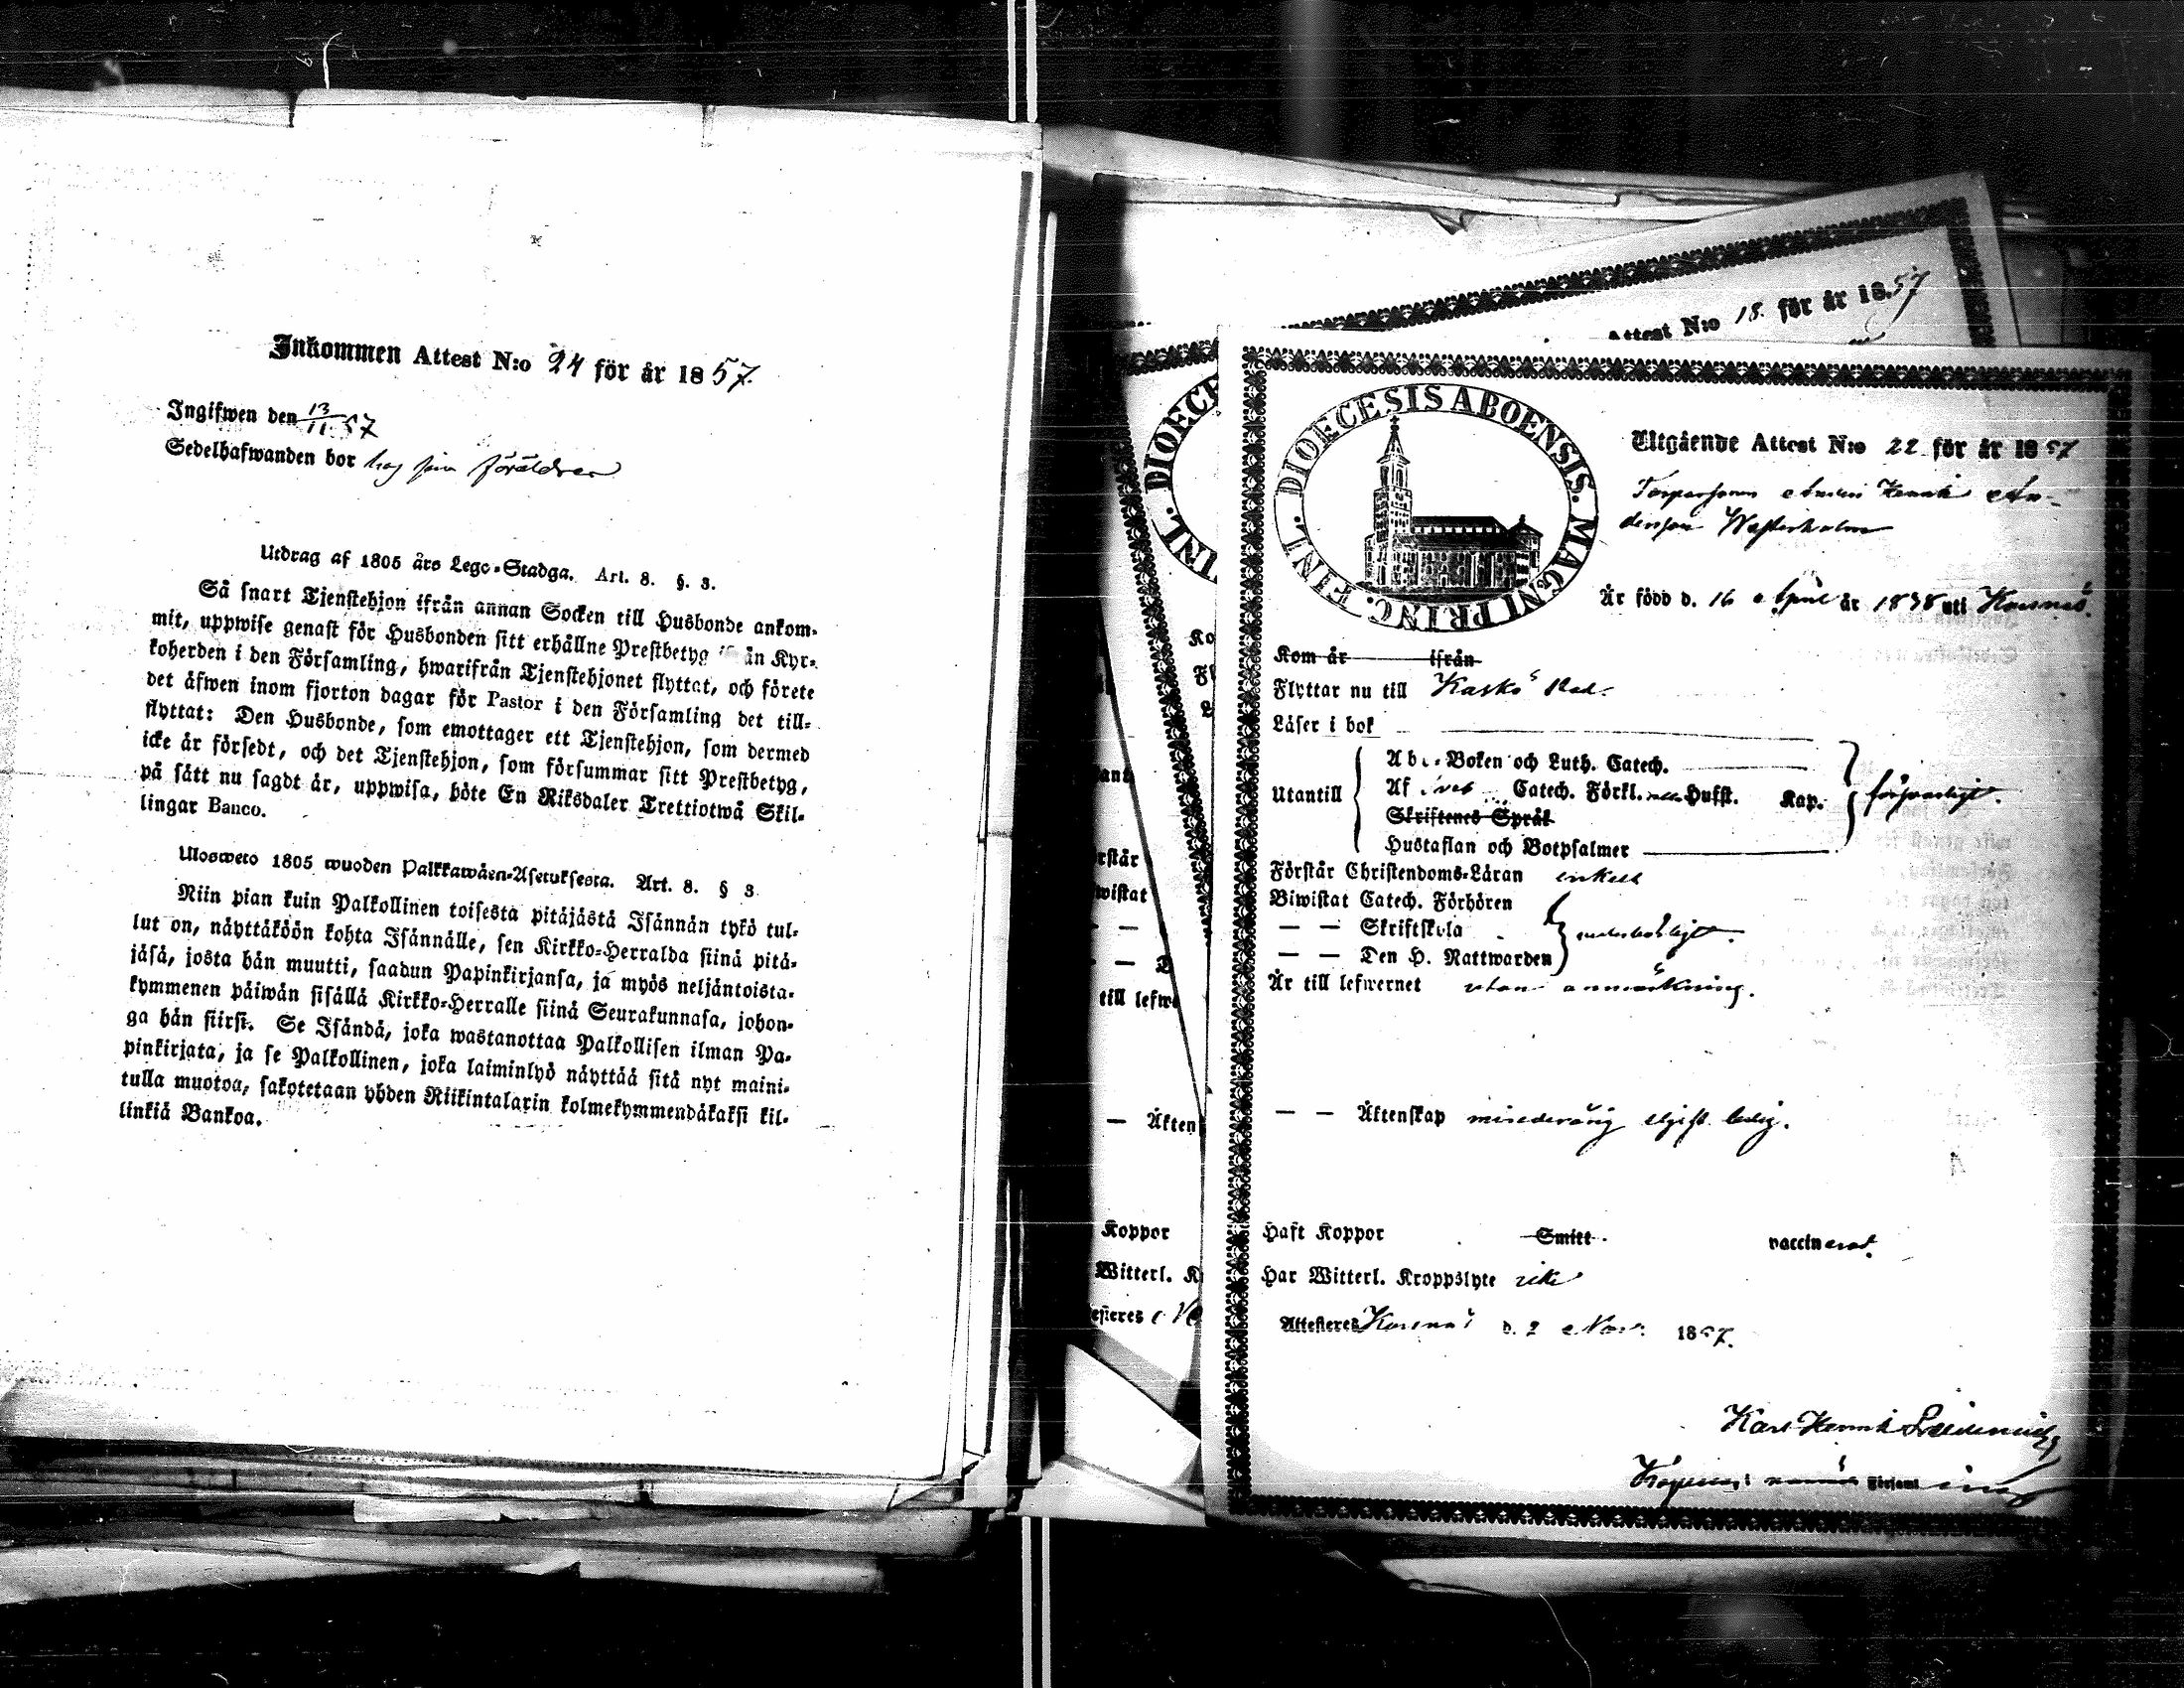 Inkommen Attest N:o 24 för år 1857.
Ingifwen den 13/11 57
Sedelhafwanden bor hos sina föräldrar
Utdrag af 1805 års Lego-Stadga. Art. 8. §. 3.
Så snart Tjenstehjon ifrån annan Socken till Husbonde ankom-
mit, uppwise genast för Husbonden sitt erhållne Prestbetyg ifrån Kyr-
koherden i den Församling, hwarifrån Tjenstehjonet flyttat, och förete
det äfwen inom fjorton dagar för Pastor i den Församling det till-
flyttat: Den Husbonde, som emottager ett Tjenstehjon, som dermed
icke är försedt, och det Tjenstehjon, som försummar sitt Prestbetyg,
på sätt nu sagdt är, uppwisa, böte En Riksdaler Trettiotwå Skil-
lingar Banco.
Ulosweto 1805 wuoden Palkkawäen-Asetuksesta. Art. 8. § 3
Niin pian kuin Palkollinen toisesta pitäjästä Isännän tykö tul-
lut on, näyttäköön kohta Isännälle, sen Kirkko-Herralda siinä pitä-
jäsä, josta hän muutti, saadun Papinkirjansa, ja myös neljäntoista-
kymmenen päiwän sisällä Kirkko-Herralle siinä Seurakunnasa, johon-
ga hän siirsi. Se Isändä, joka wastanottaa Palkollisen ilman Pa-
pinkirjata, ja se Palkollinen, joka laiminlyö näyttää sitä nyt maini-
tulla muotoa, sakotetaan yhden Riikintalarin kolmekymmendäkaksi kil-
linkiä Bankoa.
Attest N:o 18. för år 1857
DIOECESIS ABOENSIS. MAGNI PRINC. FINL.
Utgående Attest N:o 22 för år 1857
Torparsonen Anders Henrik An-
dersson Westerholm
Är född d. 16 April år 1838 uti Korsnäs.
Kom år ifrån
Flyttar nu till Kaskö Stad.
Läser i bok
Utantill
Abc-Boken och Luth. Catech.
Af Catech. Förkl. Hufst. Kap. försvarligt.
Skriftenes Språk
Hustaflan och Botpsalmer
Förstår Christendoms-Läran enkelt
Biwistat Catech. Förhören
— — Skriftskola
— — Den H. Nattwarden
Är till lefwernet utan anmärkning.
— — Äktenskap minderårig ledig.
Haft Koppor Smitt vaccinerad.
Har Witterl. Kroppslyte icke
Attesteres Korsnäs d. 2 Nov. 1857.
Karl Henrik